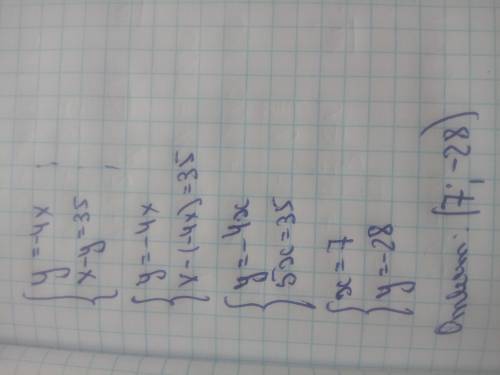 { y = -4x ;
{ x - y = 35 ;
{ y = -4x
{ x - (-4x) = 35
{ y = -4x
{ 5x = 35
{ x = 7
{ y = -28
Ответ: (7; -28)